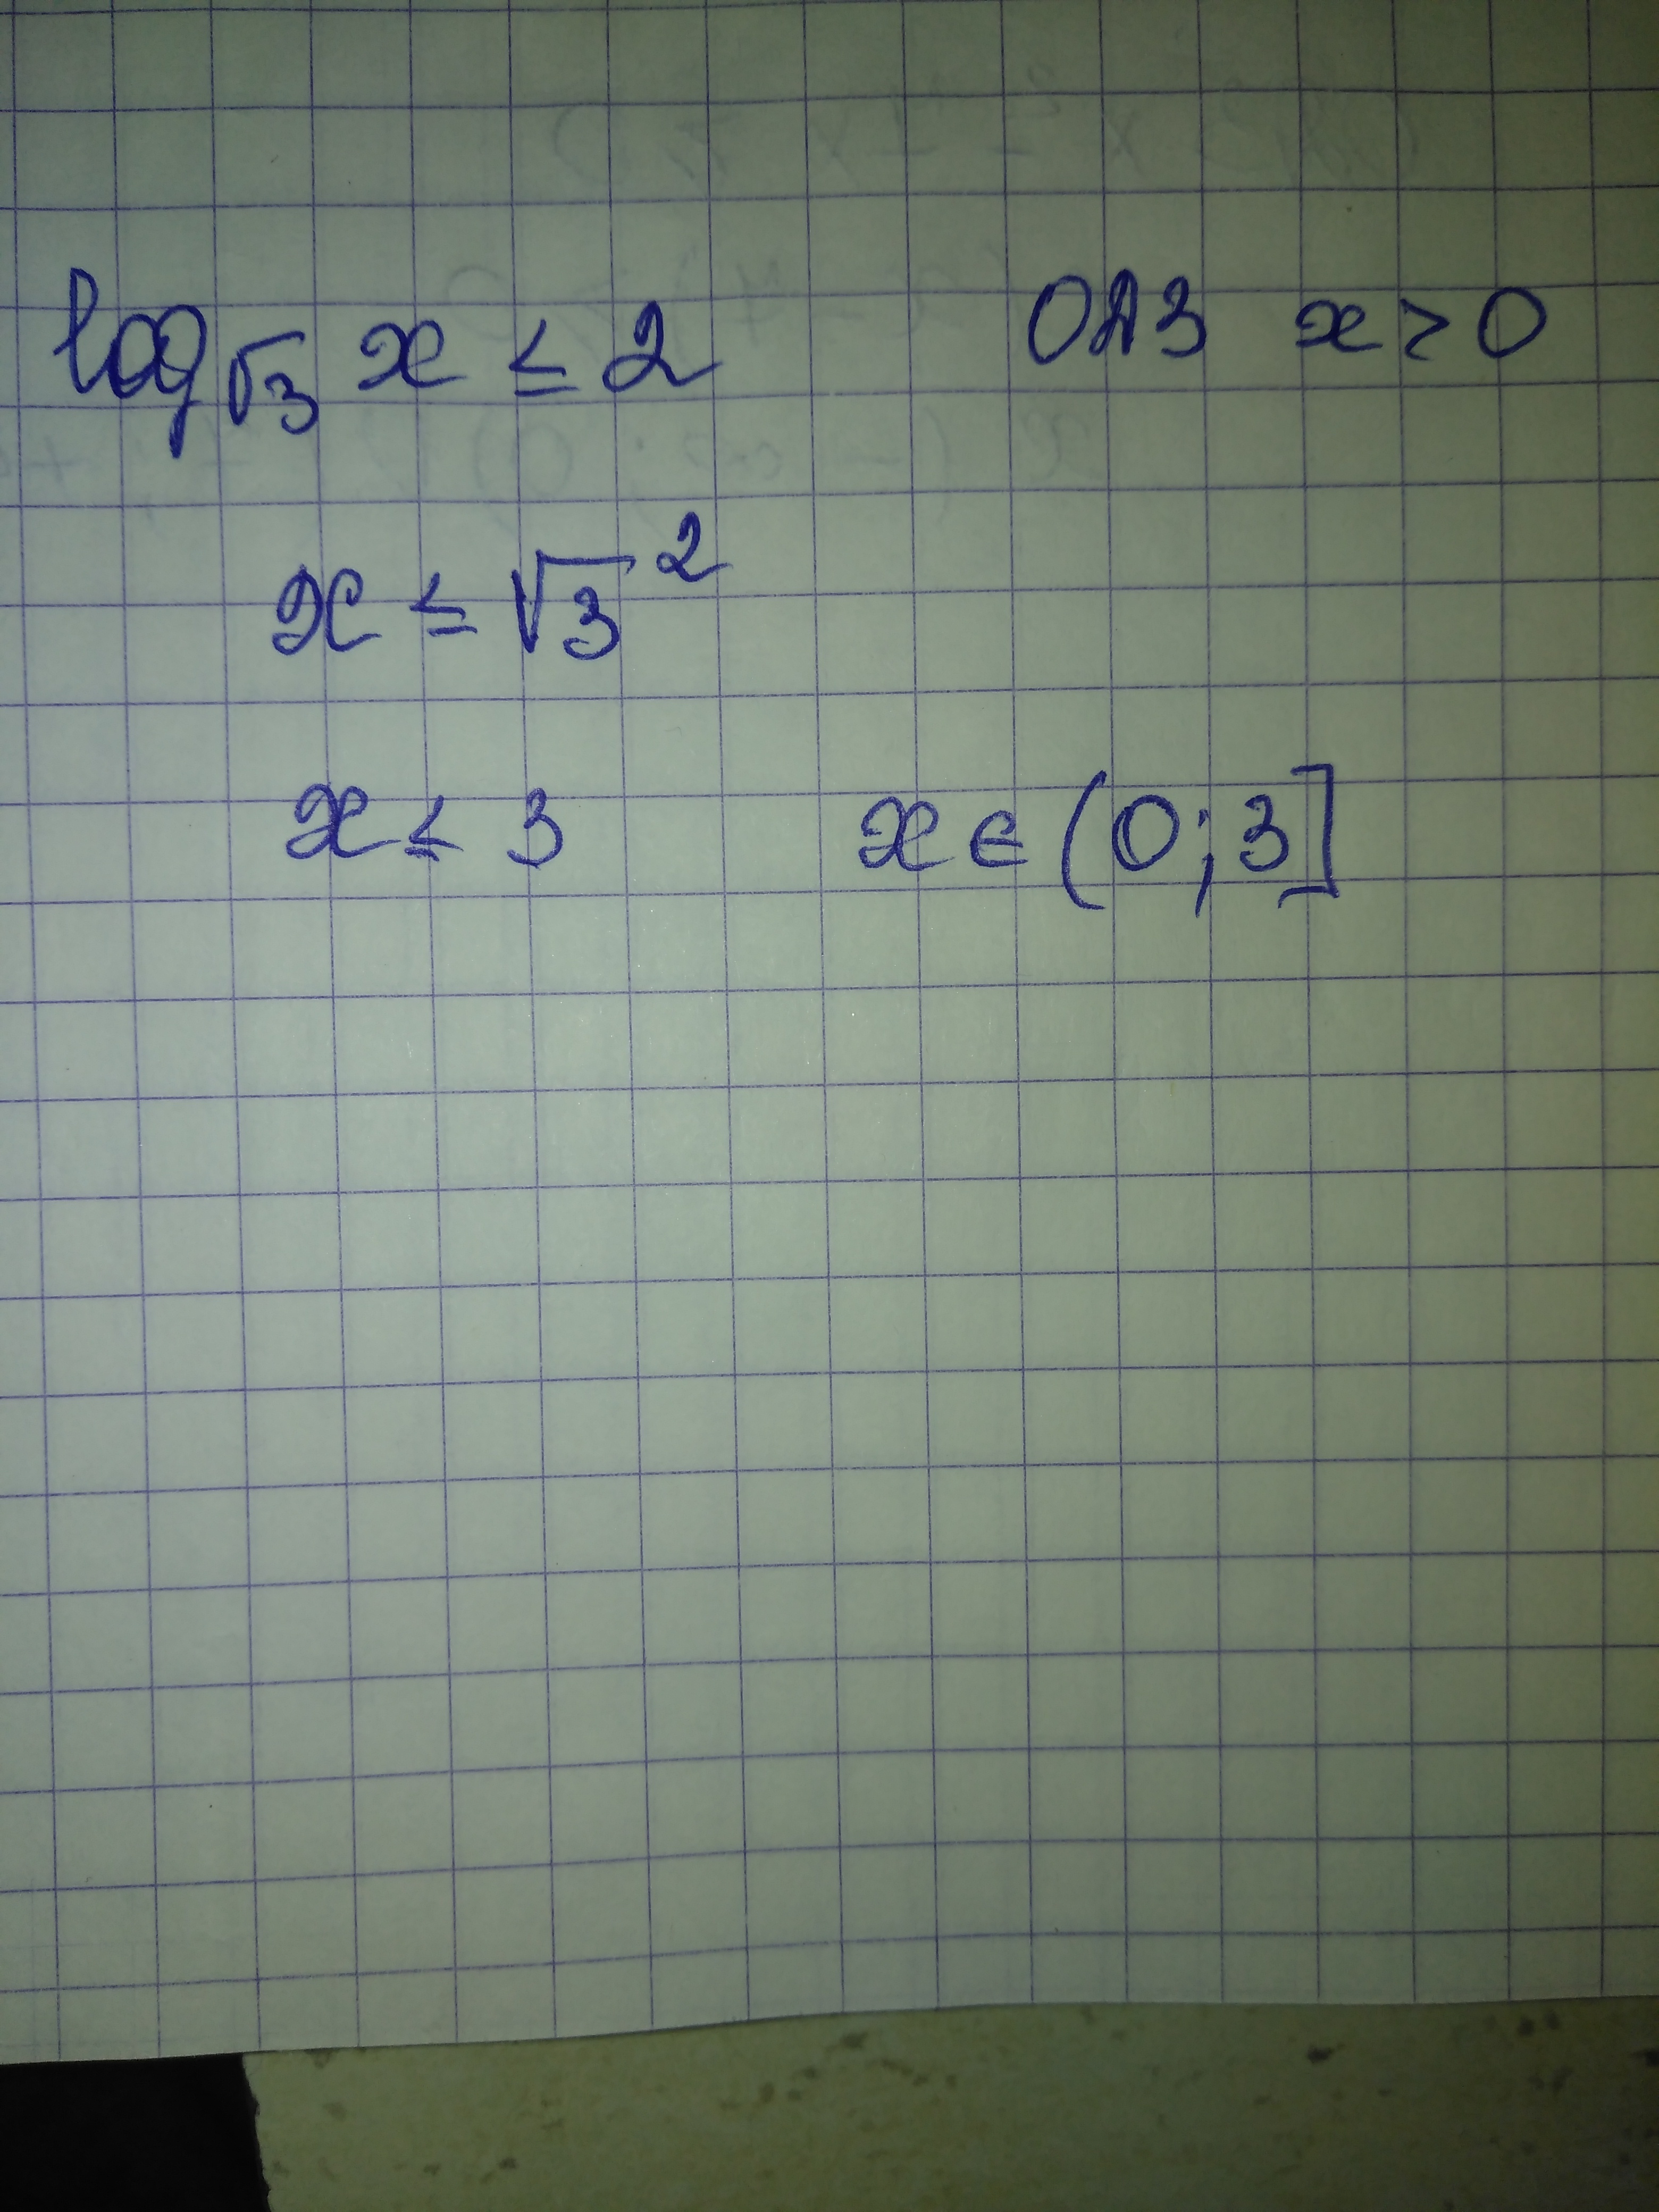 log√3 x ≤ 2 ОДЗ x > 0
x ≤ √3²
x ≤ 3 x ∈ (0; 3]